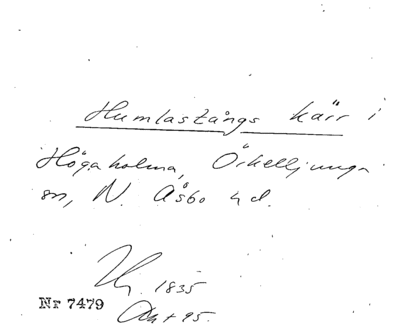 Humlastångs kärr i
Högaholma, Örkelljunga
sn, N. Åsbo hd.
1835
Nr 7479